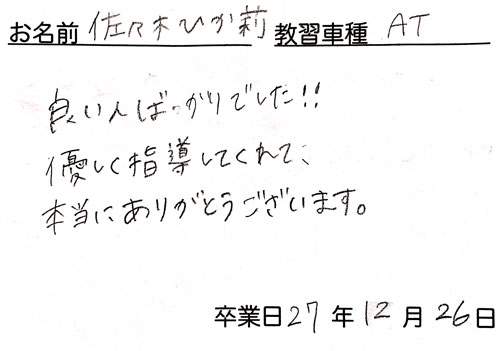 お名前 佐々木ひか莉 教習車種 AT
良い人ばっかりでした!!
優しく指導してくれて、
本当にありがとうございます。
卒業日27年12月26日